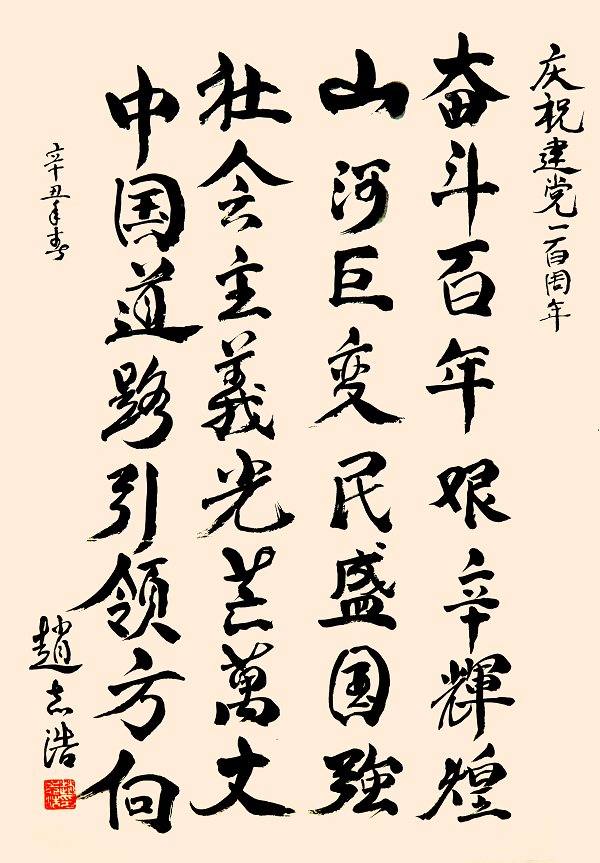 庆祝建党一百周年
奋斗百年艰辛輝煌
山河巨变民盛国強
社会主義光芒萬丈
中国道路引領方向
辛丑年春
趙志浩